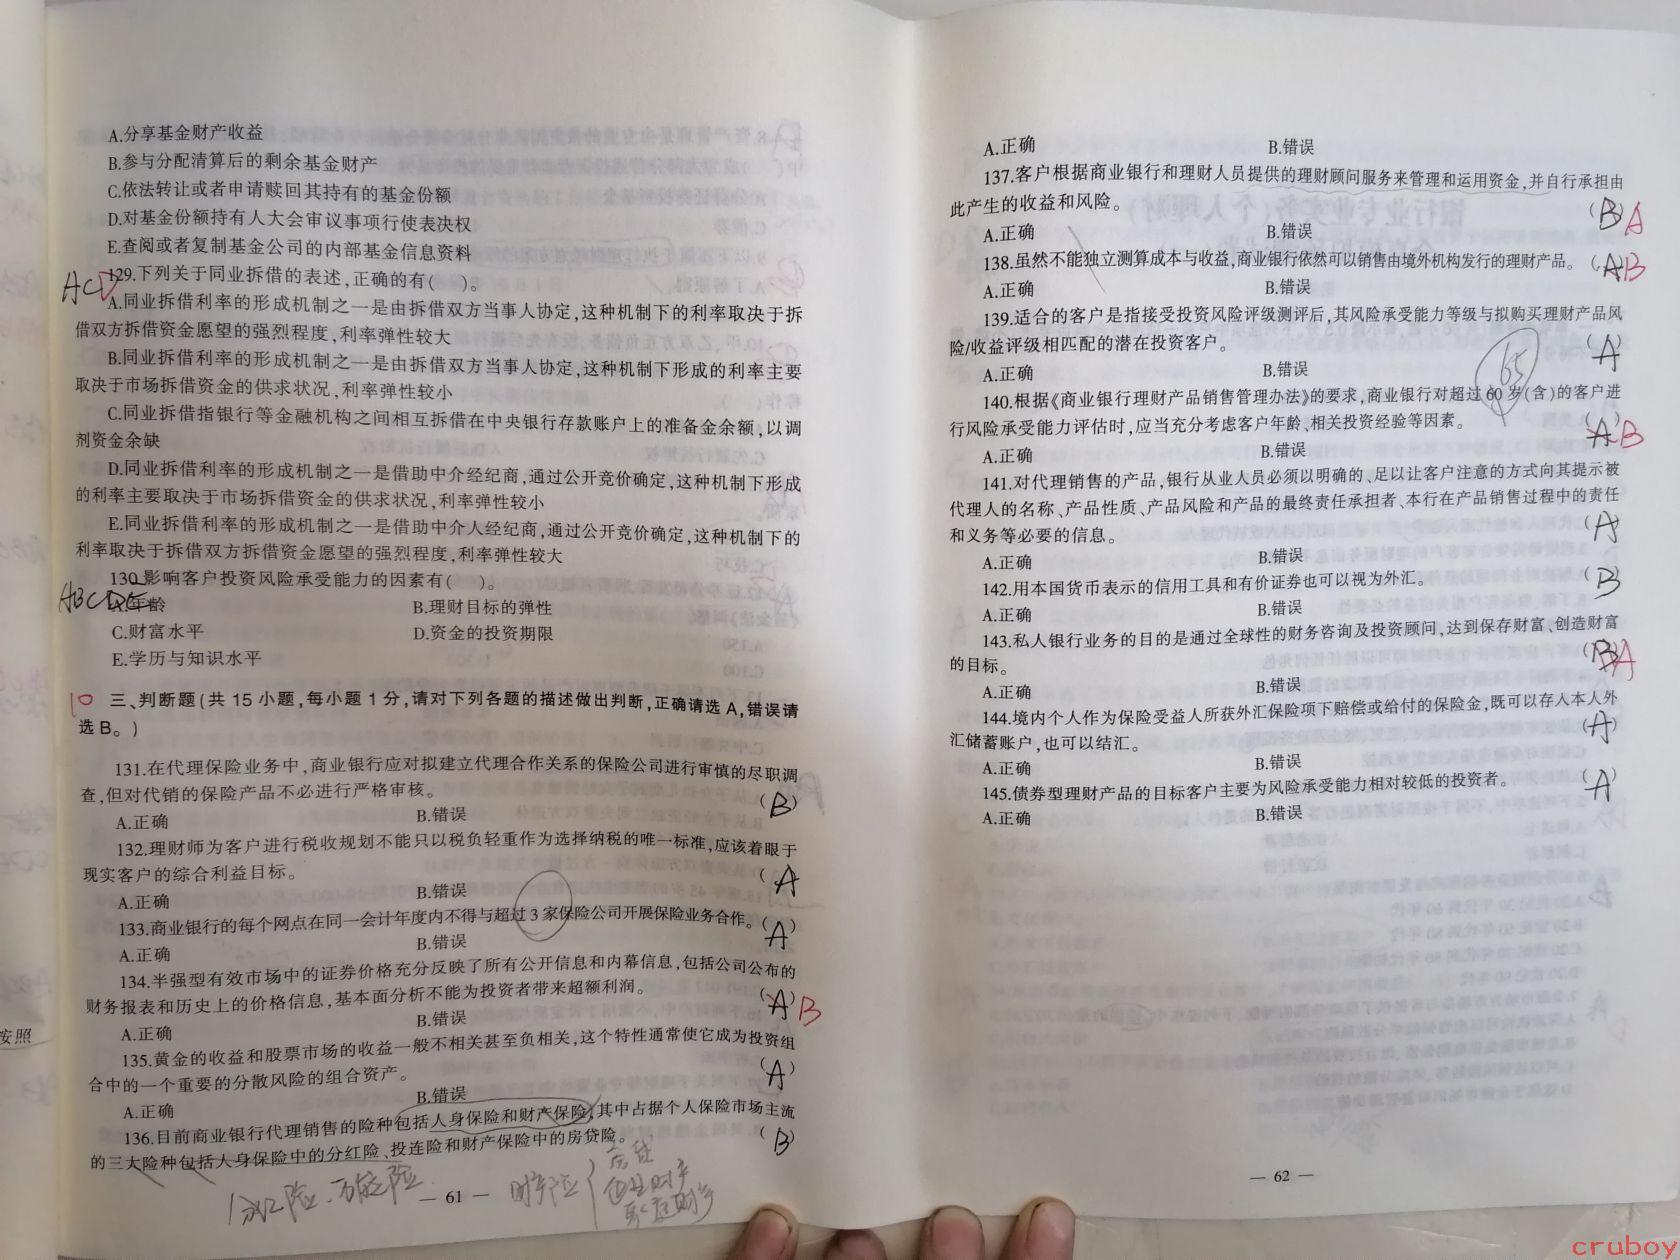 A.分享基金财产收益
B.参与分配清算后的剩余基金财产
C.依法转让或者申请赎回其持有的基金份额
D.对基金份额持有人大会审议事项行使表决权
E.查阅或者复制基金公司的内部基金信息资料
ACD
129.下列关于同业拆借的表述,正确的有(  )。
A.同业拆借利率的形成机制之一是由拆借双方当事人协定,这种机制下的利率取决于拆
借双方拆借资金愿望的强烈程度,利率弹性较大
B.同业拆借利率的形成机制之一是由拆借双方当事人协定,这种机制下形成的利率主要
取决于市场拆借资金的供求状况,利率弹性较小
C.同业拆借指银行等金融机构之间相互拆借在中央银行存款账户上的准备金余额,以调
剂资金余缺
D.同业拆借利率的形成机制之一是借助中介经纪商,通过公开竞价确定,这种机制下形成
的利率主要取决于市场拆借资金的供求状况,利率弹性较小
E.同业拆借利率的形成机制之一是借助中介人经纪商,通过公开竞价确定,这种机制下的
利率取决于拆借双方拆借资金愿望的强烈程度,利率弹性较大
130.影响客户投资风险承受能力的因素有(  )。
ABCDE
A.年龄 B.理财目标的弹性
C.财富水平 D.资金的投资期限
E.学历与知识水平
10 三、判断题(共 15 小题,每小题 1 分,请对下列各题的描述做出判断,正确请选 A,错误请
选 B。)
131.在代理保险业务中,商业银行应对拟建立代理合作关系的保险公司进行审慎的尽职调
查,但对代销的保险产品不必进行严格审核。 (B)
A.正确 B.错误
132.理财师为客户进行税收规划不能只以税负轻重作为选择纳税的唯一标准,应该着眼于
现实客户的综合利益目标。 (A)
A.正确 B.错误
133.商业银行的每个网点在同一会计年度内不得与超过 3 家保险公司开展保险业务合作。(A)
A.正确 B.错误
134.半强型有效市场中的证券价格充分反映了所有公开信息和内幕信息,包括公司公布的
财务报表和历史上的价格信息,基本面分析不能为投资者带来超额利润。 (A) B
A.正确 B.错误
135.黄金的收益和股票市场的收益一般不相关甚至负相关,这个特性通常使它成为投资组
合中的一个重要的分散风险的组合资产。 (A)
A.正确 B.错误
136.目前商业银行代理销售的险种包括人身保险和财产保险,其中占据个人保险市场主流
的三大险种包括人身保险中的分红险、投连险和财产保险中的房贷险。 (B)
分红险、万能险
财产险 房贷
家庭财产
— 61 —
A.正确 B.错误
137.客户根据商业银行和理财人员提供的理财顾问服务来管理和运用资金,并自行承担由
此产生的收益和风险。 (B) A
A.正确 B.错误
138.虽然不能独立测算成本与收益,商业银行依然可以销售由境外机构发行的理财产品。 (A) B
A.正确 B.错误
139.适合的客户是指接受投资风险评级测评后,其风险承受能力等级与拟购买理财产品风
险/收益评级相匹配的潜在投资客户。 (A)
A.正确 B.错误
65
140.根据《商业银行理财产品销售管理办法》的要求,商业银行对超过 60 岁(含)的客户进
行风险承受能力评估时,应当充分考虑客户年龄、相关投资经验等因素。 (A) B
A.正确 B.错误
141.对代理销售的产品,银行从业人员必须以明确的、足以让客户注意的方式向其提示被
代理人的名称、产品性质、产品风险和产品的最终责任承担者、本行在产品销售过程中的责任
和义务等必要的信息。 (A)
A.正确 B.错误
142.用本国货币表示的信用工具和有价证券也可以视为外汇。 (B)
A.正确 B.错误
143.私人银行业务的目的是通过全球性的财务咨询及投资顾问,达到保存财富、创造财富
的目标。 (B) A
A.正确 B.错误
144.境内个人作为保险受益人所获外汇保险项下赔偿或给付的保险金,既可以存入本人外
汇储蓄账户,也可以结汇。 (A)
A.正确 B.错误
145.债券型理财产品的目标客户主要为风险承受能力相对较低的投资者。 (A)
A.正确 B.错误
— 62 —
按照
cruboy